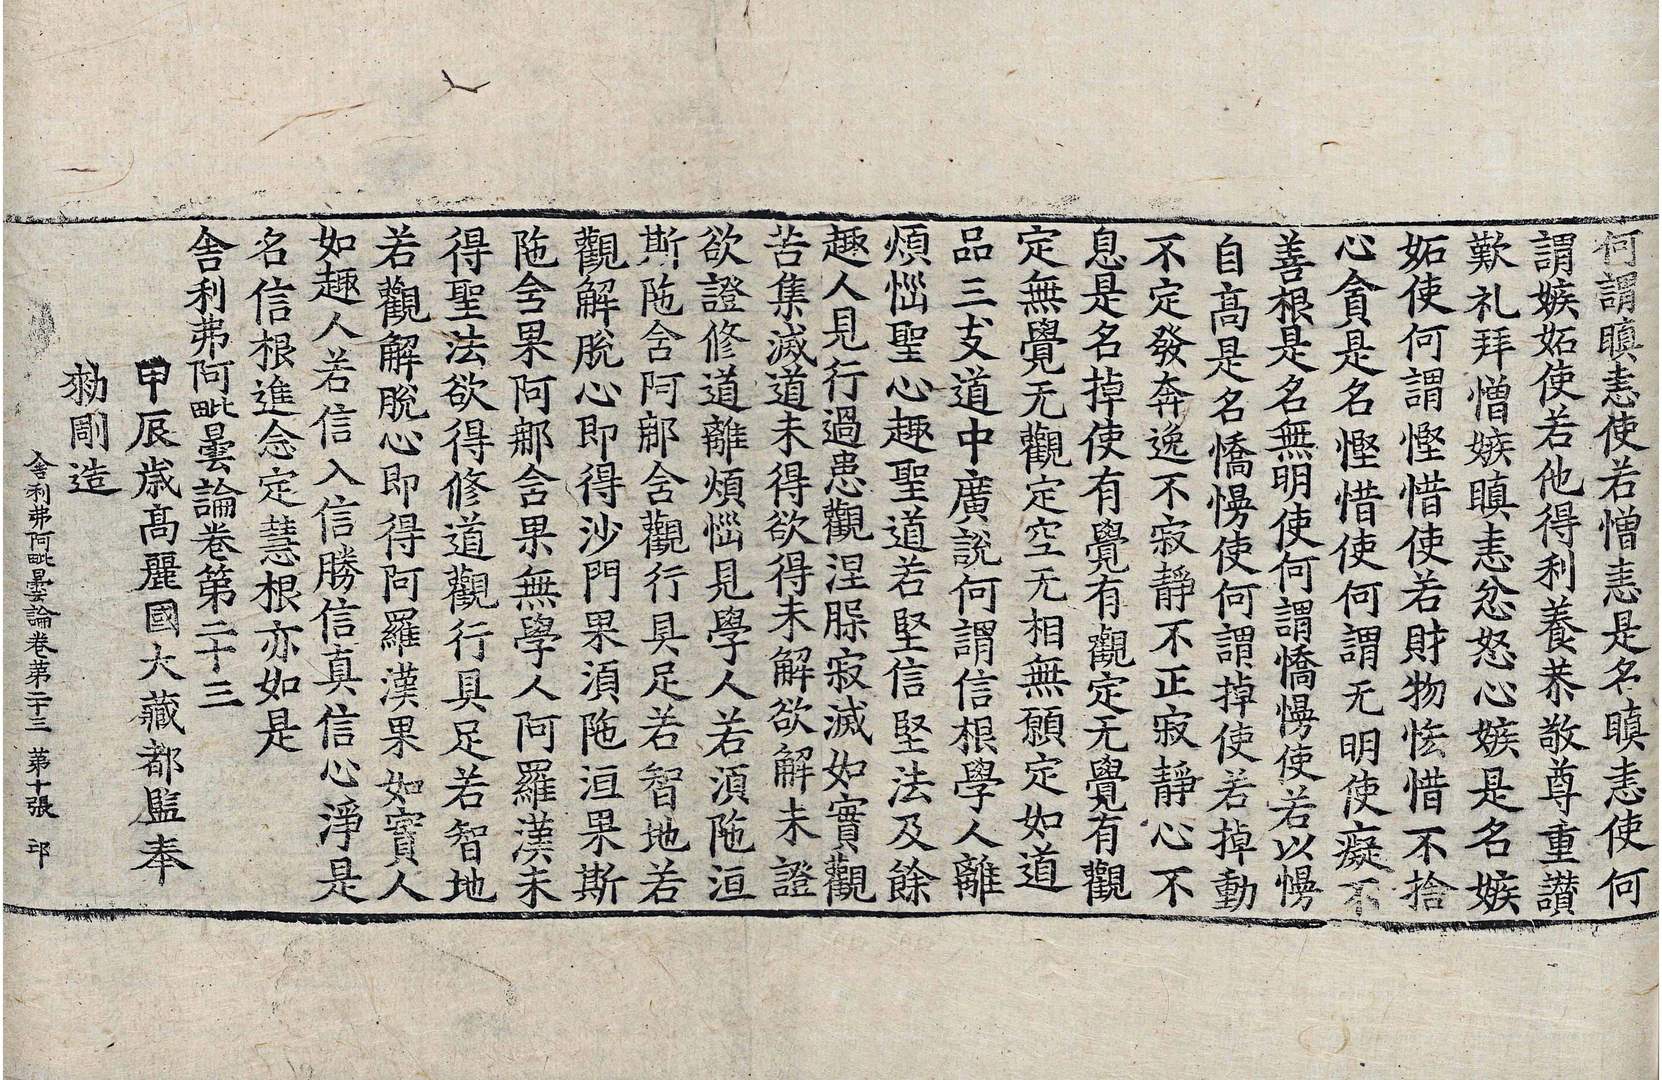 何謂瞋恚使若憎恚是名瞋恚使何
謂嫉妬使若他得利養恭敬尊重讃
歎礼拜憎嫉瞋恚忿怒心嫉是名嫉
妬使何謂慳惜使若財物恡惜不捨
心貪是名慳惜使何謂无明使癡不
善根是名無明使何謂憍慢使若以慢
自高是名憍慢使何謂掉使若掉動
不定發奔逸不寂靜不正寂靜心不
息是名掉使有覺有觀定无覺有觀
定無覺无觀定空无相無願定如道
品三支道中廣說何謂信根學人離
煩惱聖心趣聖道若堅信堅法及餘
趣人見行過患觀涅槃寂滅如實觀
苦集滅道未得欲得未解欲解未證
欲證修道離煩惱見學人若湏陁洹
斯陁含阿那含觀行具足若智地若
觀解脫心即得沙門果湏陁洹果斯
陁含果阿那含果無學人阿羅漢未
得聖法欲得修道觀行具足若智地
若觀解脫心即得阿羅漢果如實人
如趣人若信入信勝信真信心淨是
名信根進念定慧根亦如是
舍利弗阿毗曇論卷第二十三
甲辰歲高麗國大藏都監奉
勑彫造
舍利弗阿毗曇論卷第二十三　第十張　邛